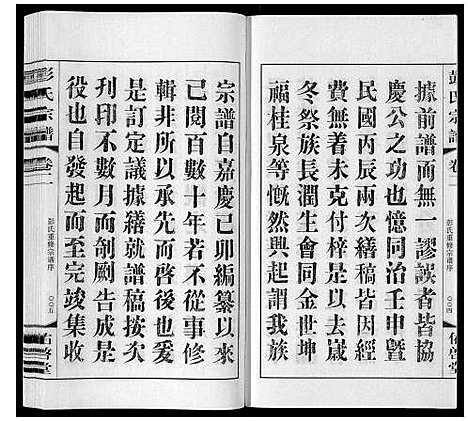 彭氏宗譜
卷一
彭氏重修宗譜序
〇〇四
佑啓堂
據前譜而無一謬誤者皆協
慶公之功也憶同治壬申暨
民國丙辰兩次繕稿皆因經
費無著未克付梓是以去歲
冬祭族長潤生會同金世坤
福桂泉等慨然興起謂我族
宗譜自嘉慶己卯編纂以來
己閱百數十年若不從事修
輯非所以承先而啓後也爰
是訂定議據繕就譜稿按次
刊印不數月而剞劂告成是
役也自發起而至完竣集收
彭氏宗譜
卷一
彭氏重修宗譜序
〇〇五
佑啓堂